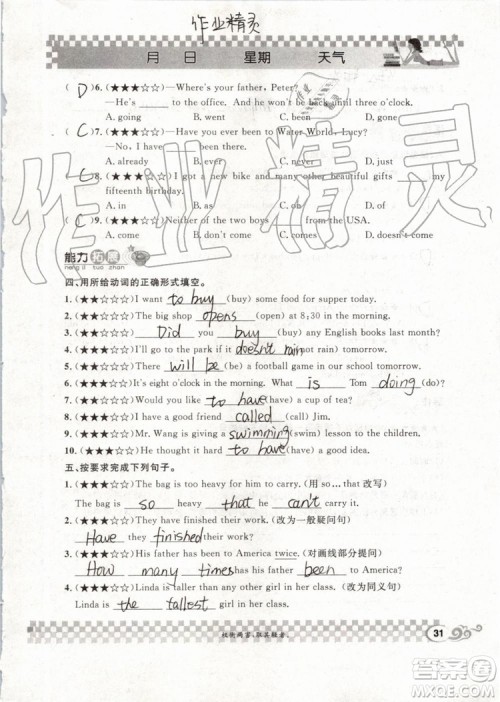 作业精灵
月 日 星期 天气
( D )6. (★★★☆☆)—Where's your father, Peter?
—He's ____ to the office. And he won't be back until three o'clock.
A. going B. went C. been D. gone
( C )7. (★★★☆☆)—Have you ever been to Water World, Lucy?
—No, I have ____ been there.
A. already B. ever C. never D. just
8. (★★★☆☆)I got a new bike and many other beautiful gifts ____ my
fifteenth birthday.
A. in B. as C. on D. at
( C )9. (★★★☆☆)Neither of the two boys ____ from the USA.
A. don't come B. come C. comes D. doesn't come
能力 拓展
neng li tuo zhan
四、用所给动词的正确形式填空。
1. (★★☆☆☆)I want to buy (buy) some food for supper today.
2. (★★☆☆☆)The big shop opens (open) at 8:30 in the morning.
3. (★★☆☆☆) Did you buy (buy) any English books last month?
4. (★★☆☆☆)I'll go to the park if it doesn't rain (not rain) tomorrow.
5. (★★☆☆☆)There will be (be) a football game in our school tomorrow.
6. (★★☆☆☆)It's eight o'clock in the morning. What is Tom doing (do)?
7. (★★☆☆☆)Would you like to have (have) a cup of tea?
8. (★★☆☆☆)I have a good friend called (call) Jim.
9. (★★☆☆☆)Mr. Wang is giving a swimming (swim) lesson to the children.
10. (★★☆☆☆)He thought it hard to have (have) a good idea.
五、按要求完成下列句子。
1. (★★★☆☆)The bag is too heavy for him to carry. (用 so…that 改写)
The bag is so heavy that he can't carry it.
2. (★★★☆☆)They have finished their work. (改为一般疑问句)
Have they finished their work?
3. (★★★☆☆)His father has been to America twice. (对画线部分提问)
How many times has his father been to America?
4. (★★★☆☆)Linda is taller than any other girl in her class. (改为同义句)
Linda is the tallest girl in her class.
31
作业精灵
答案圈
MXQE.COM